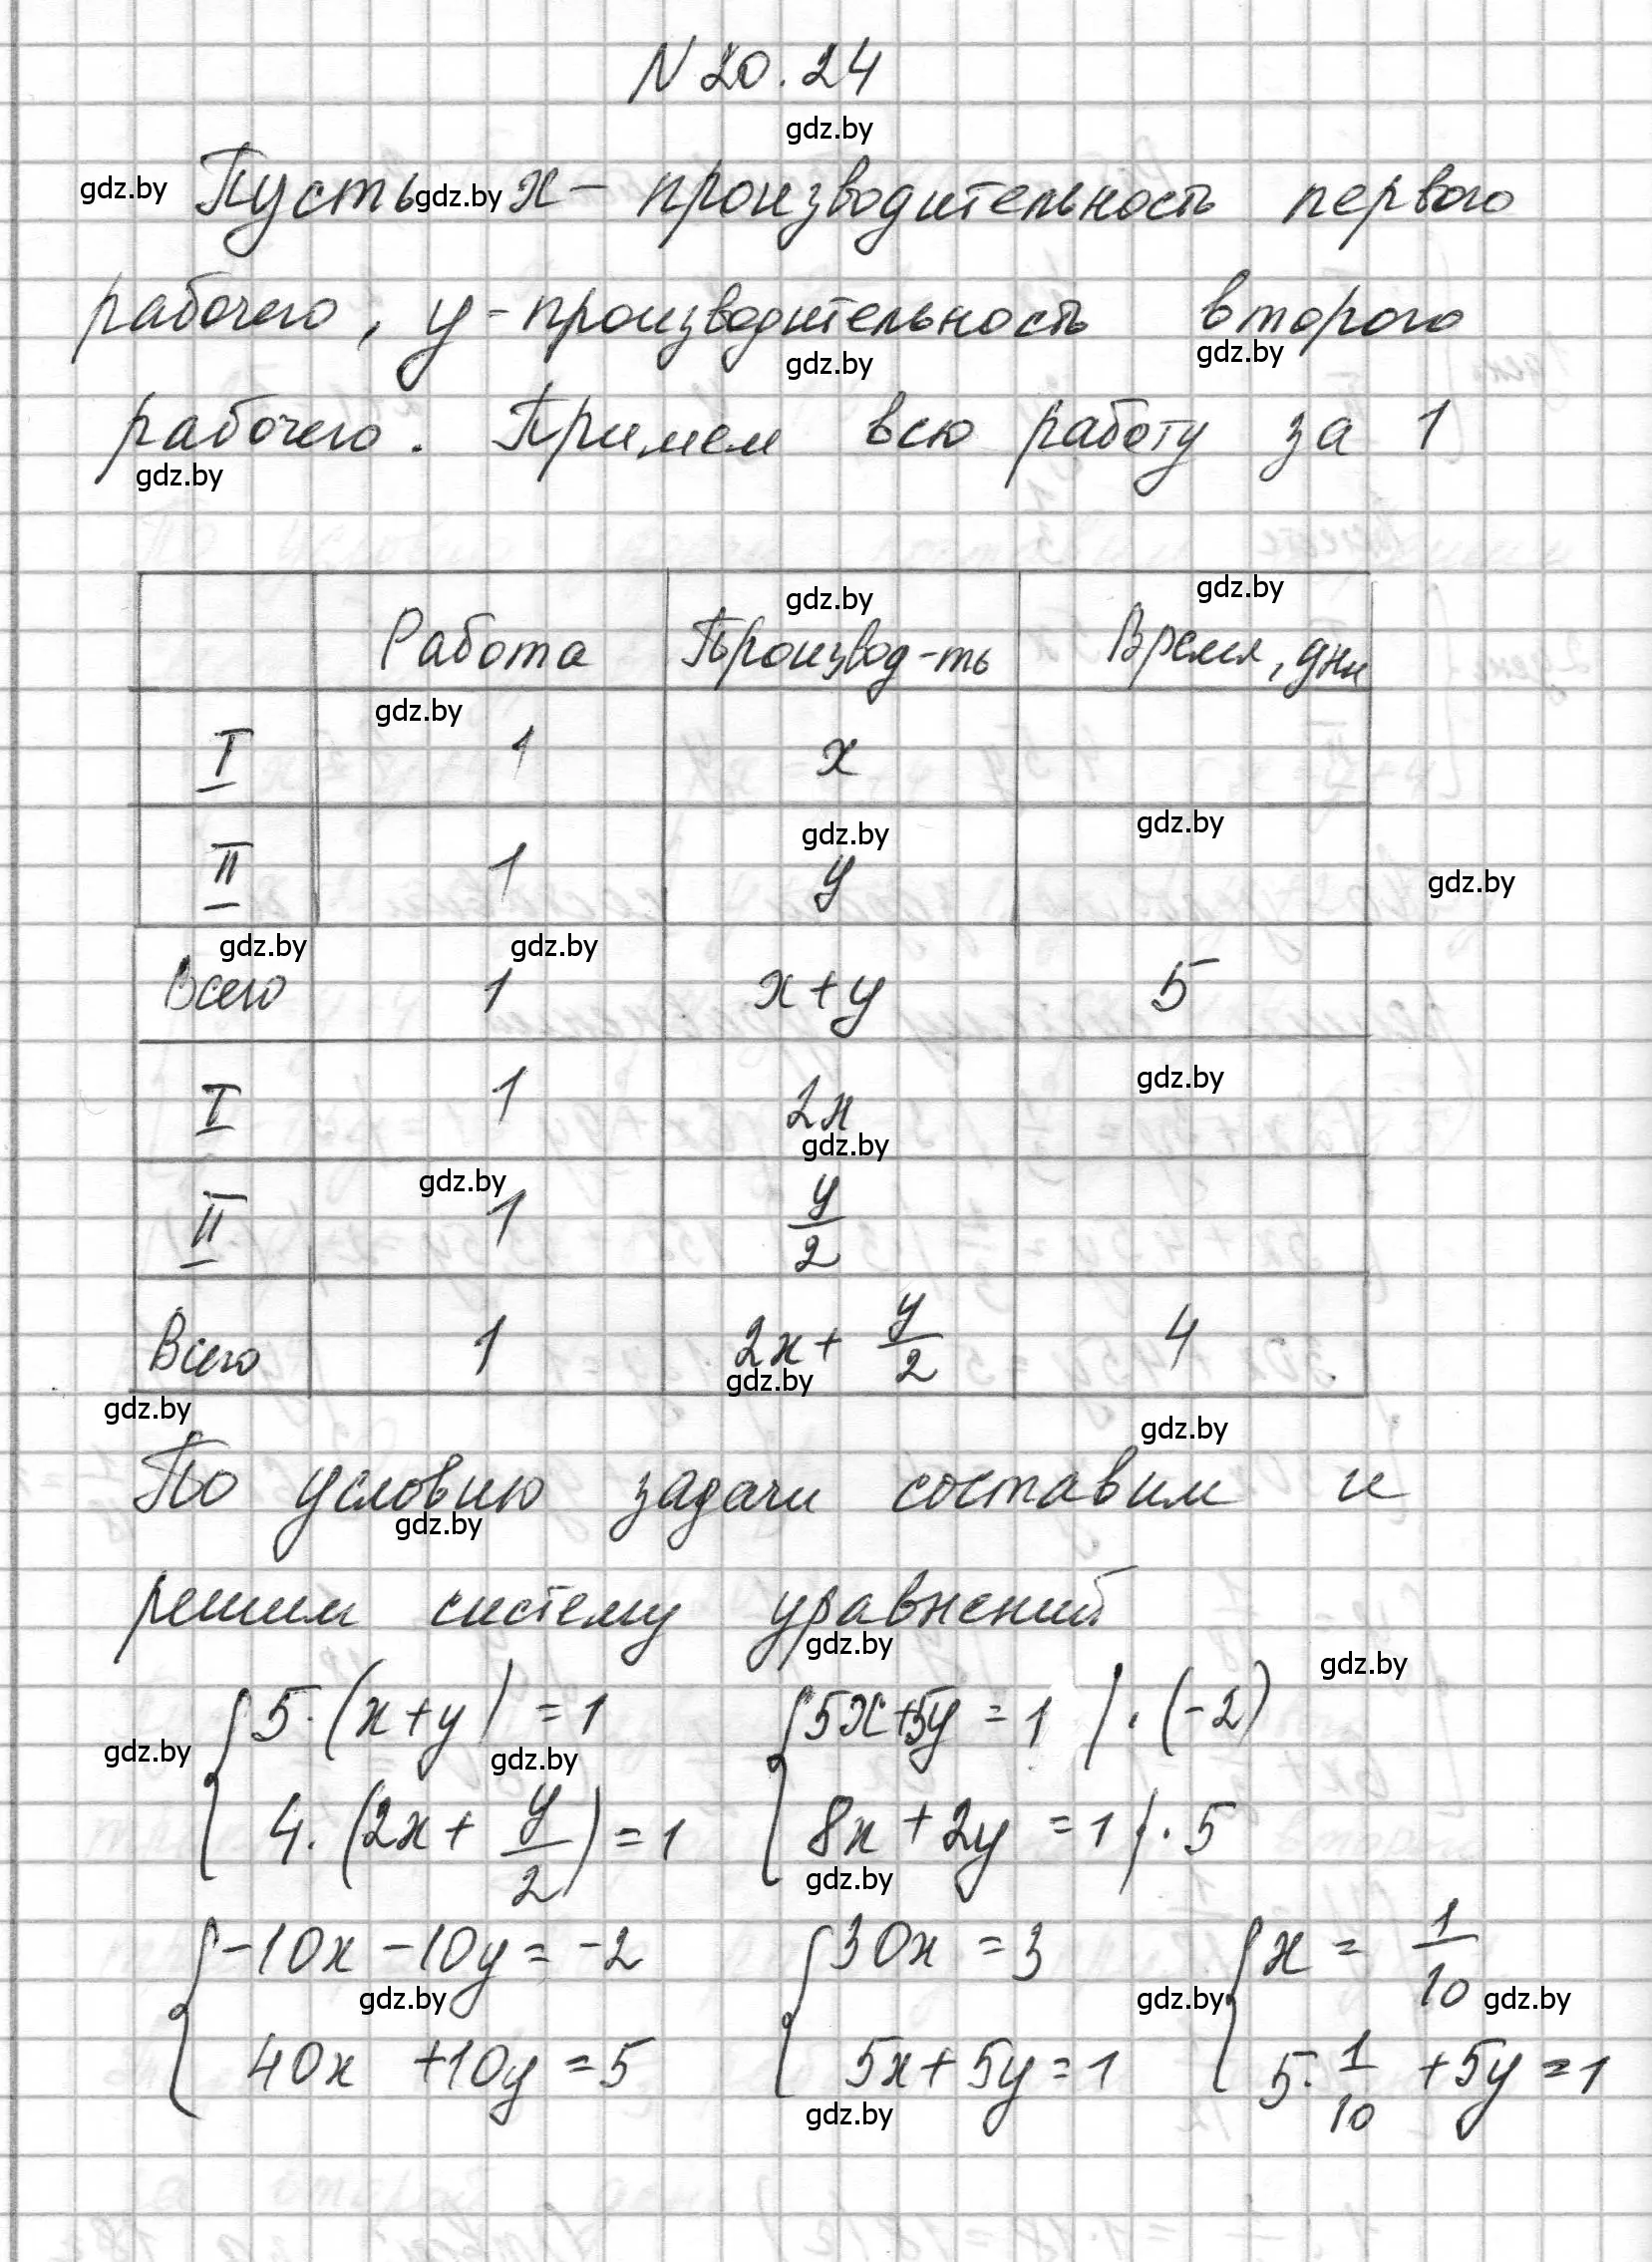 N 20.24
Пусть x – производительность первого
рабочего, y – производительность второго
рабочего. Примем всю работу за 1
Работа Производ-ть Время, дни
I 1 x
II 1 y
Всего 1 x+y 5
I 1 2x
II 1 y/2
Всего 1 2x + y/2 4
По условию задачи составим и
решим систему уравнений
{ 5·(x+y) = 1 { 5x+5y = 1 | ·(-2)
4·(2x + y/2) = 1 8x + 2y = 1 | · 5
{ -10x - 10y = -2 { 30x = 3 { x = 1/10
40x + 10y = 5 5x + 5y = 1 5·1/10 + 5y = 1
gdz.by